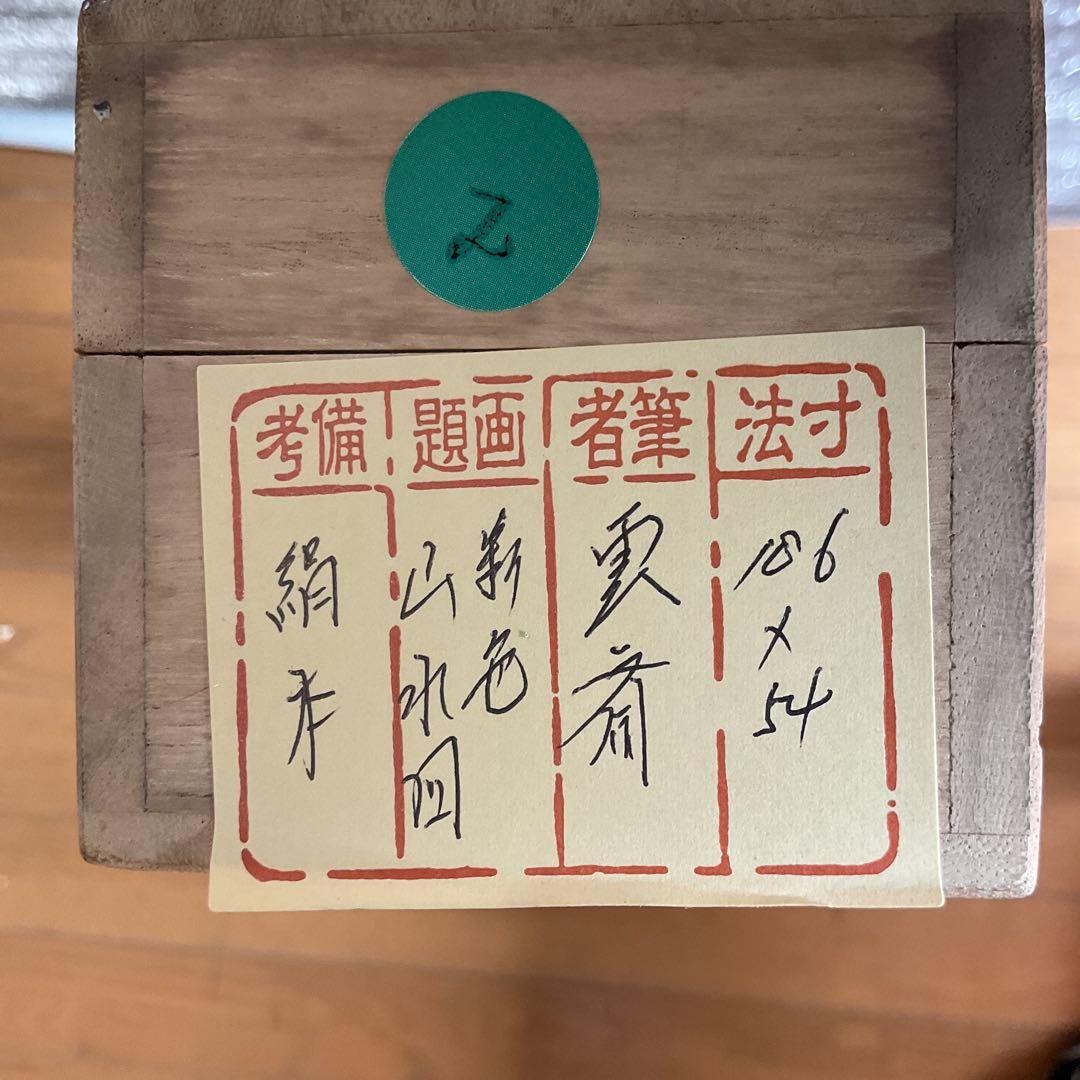 2
寸法
186
×
54
筆者
雲斎
画題
彩色
山水図
備考
絹本